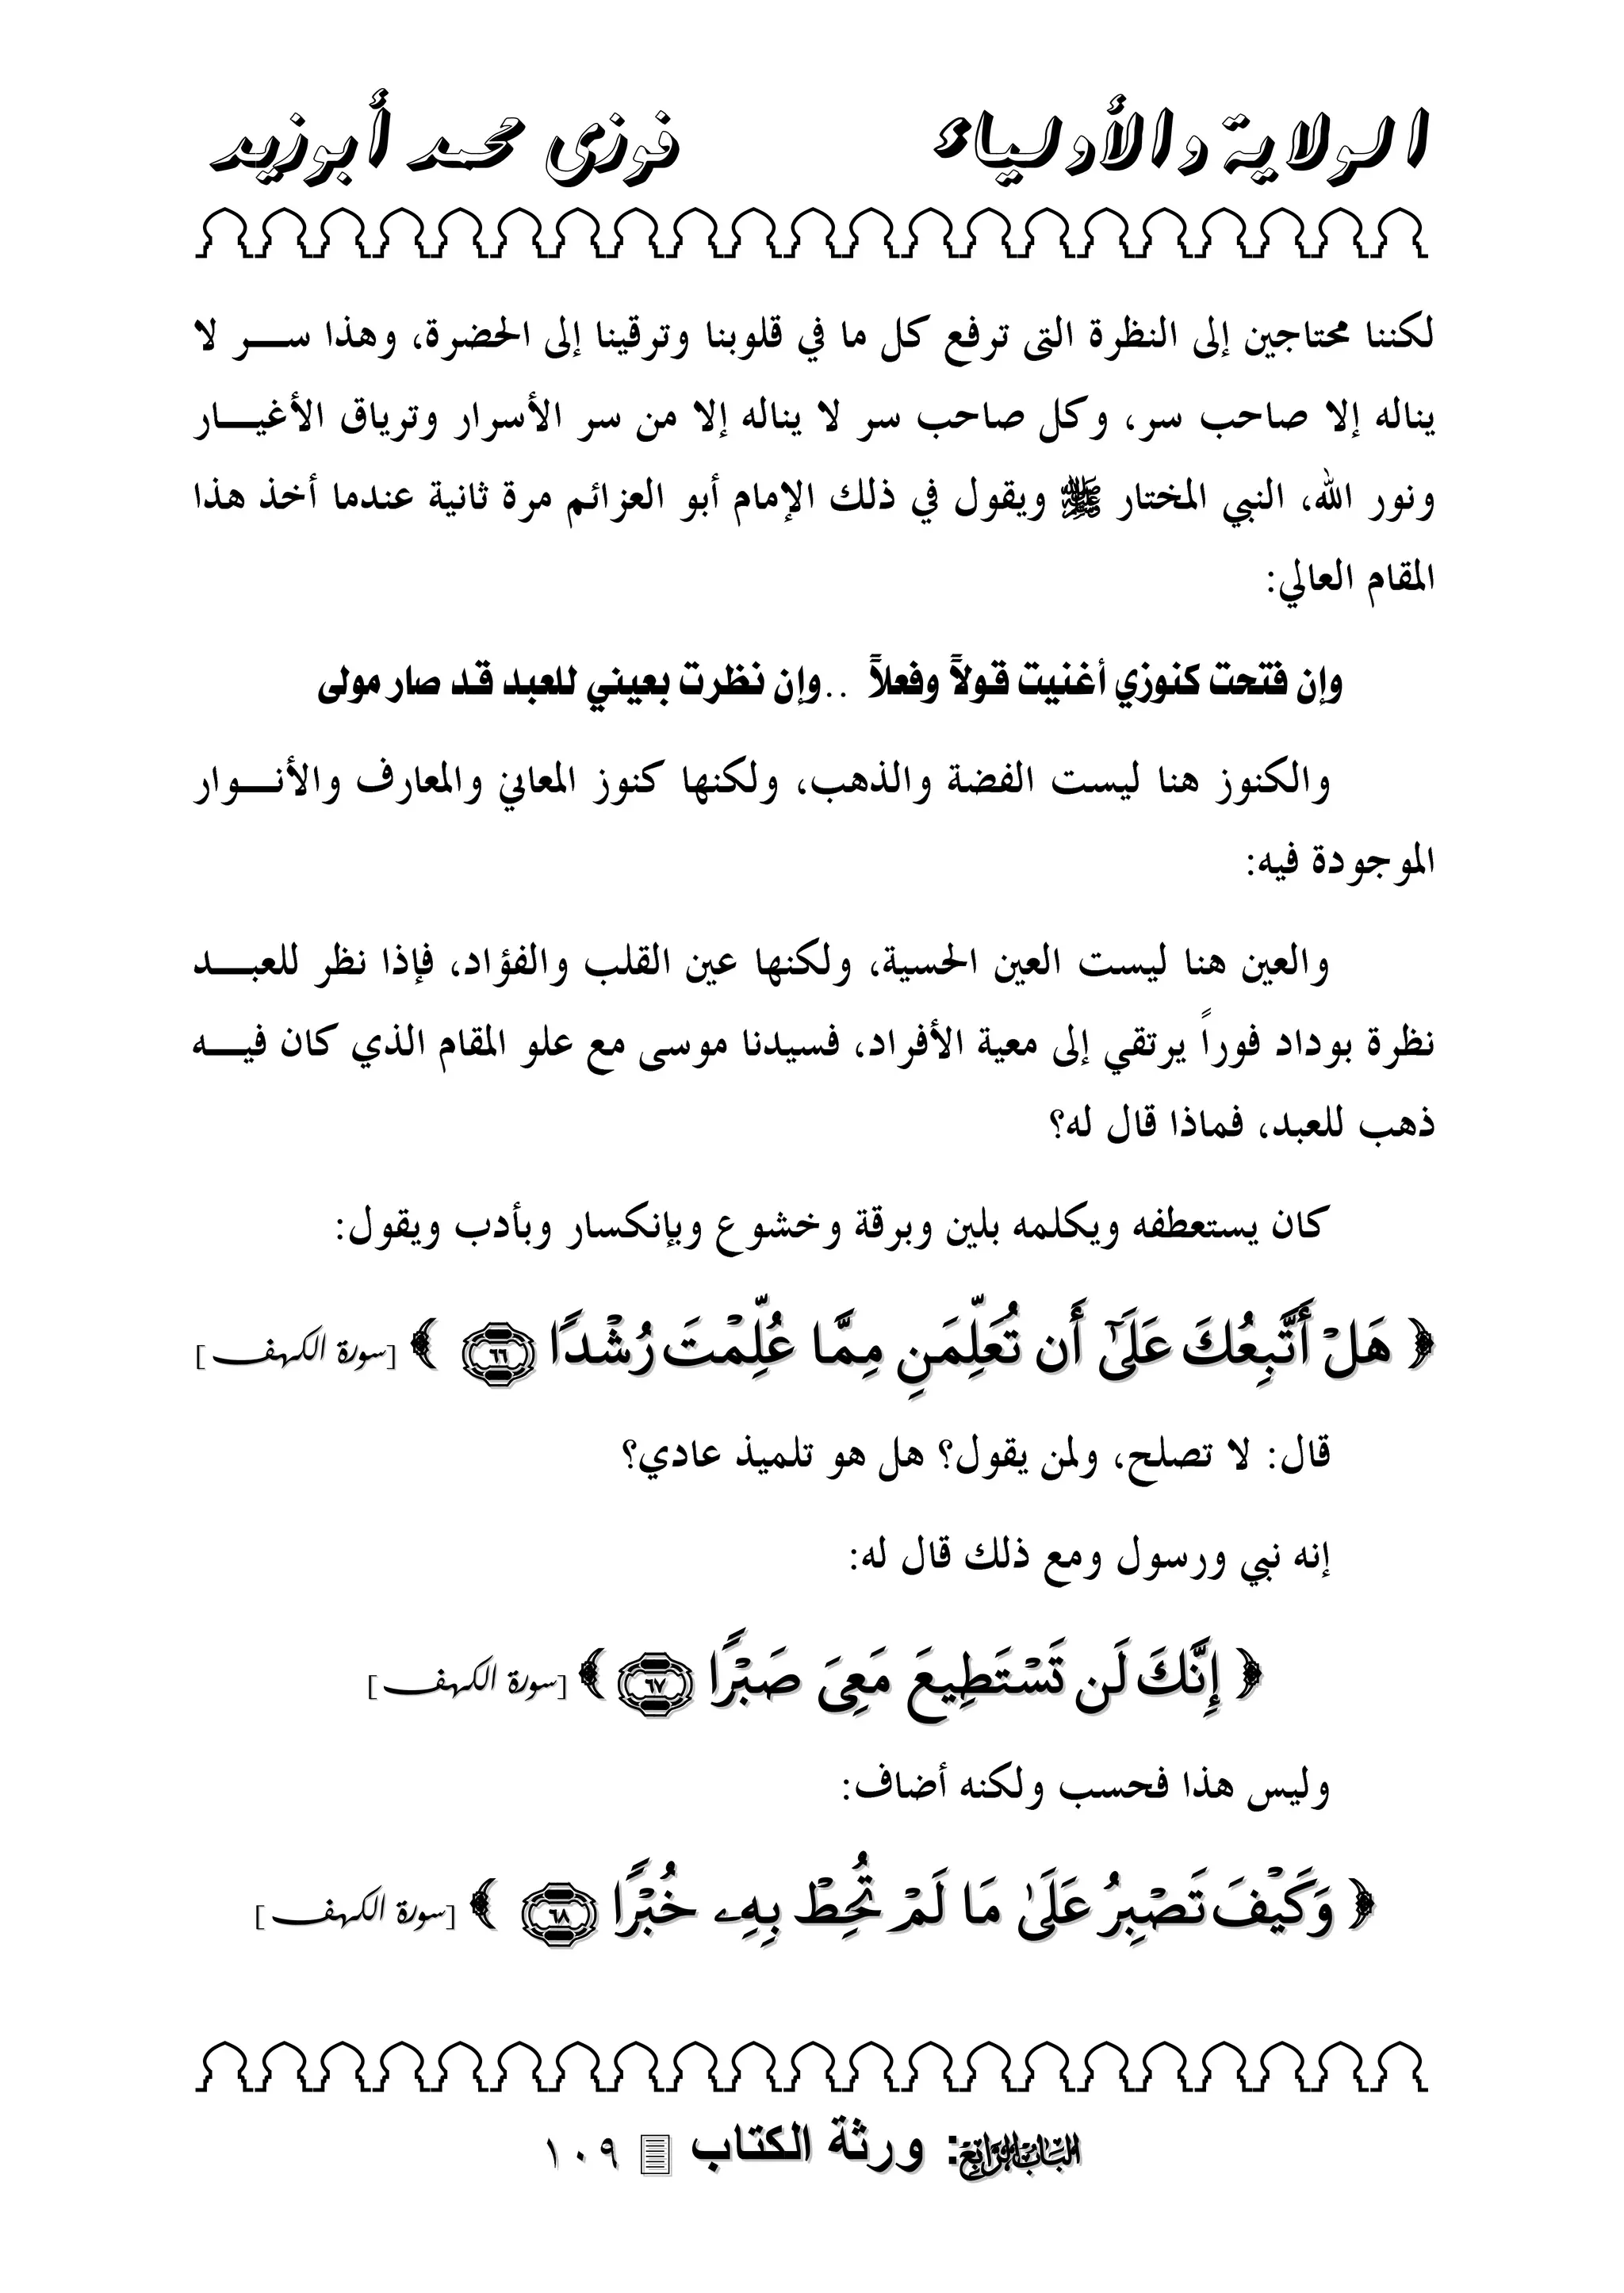 الولاية والأولياء فوزى محمد أبوزيد
لكننا محتاجين إلى النظرة التى ترفع كل ما في قلوبنا وترقينا إلى الحضرة، وهذا ســـر لا
يناله إلا صاحب سر، وكل صاحب سر لا يناله إلا من سر الأسرار وترياق الأغيـــار
ونور الله، النبي المختار ﷺ ويقول في ذلك الإمام أبو العزائم مرة ثانية عندما أخذ هذا
المقام العالي:
وإن فتحت كنوزي أغنيت قولاً وفعلاً ..وإن نظرت بعيني للعبد قد صار مولى
والكنوز هنا ليست الفضة والذهب، ولكنها كنوز المعاني والمعارف والأنـــوار
الموجودة فيه:
والعين هنا ليست العين الحسية، ولكنها عين القلب والفؤاد، فإذا نظر للعبـــد
نظرة بوداد فوراً يرتقي إلى معية الأفراد، فسيدنا موسى مع علو المقام الذي كان فيـــه
ذهب للعبد، فماذا قال له؟
كان يستعطفه ويكلمه بلين وبرقة وخشوع وبإنكسار وبأدب ويقول:
﴿ هَلْ أَتَّبِعُكَ عَلَىٰٓ أَن تُعَلِّمَنِ مِمَّا عُلِّمْتَ رُشْدًا ٦٦ ﴾ [سورة الكهف]
قال: لا تصلح، ولمن يقول؟ هل هو تلميذ عادي؟
إنه نبي ورسول ومع ذلك قال له:
﴿ إِنَّكَ لَن تَسْتَطِيعَ مَعِىَ صَبْرًا ٦٧ ﴾ [سورة الكهف]
وليس هذا فحسب ولكنه أضاف:
﴿ وَكَيْفَ تَصْبِرُ عَلَىٰ مَا لَمْ تُحِطْ بِهِۦ خُبْرًا ٦٨ ﴾ [سورة الكهف]
الباب الرابع: ورثة الكتاب ١٠٩